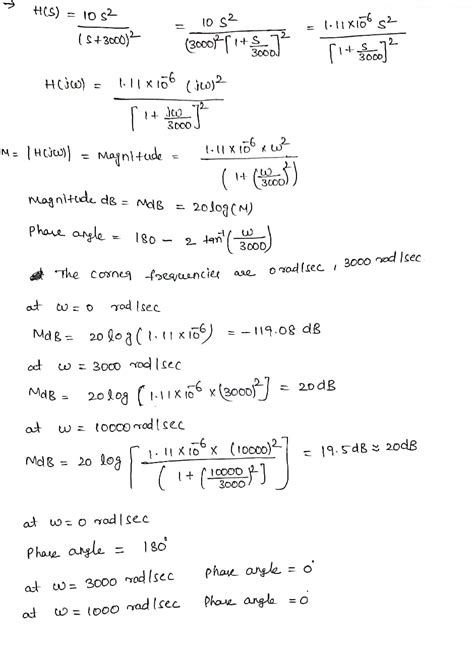 → H(s) = 10 s² / (s+3000)² = 10 s² / (3000)² [1 + s/3000]² = 1.11×10⁻⁶ s² / [1 + s/3000]²
H(jω) = 1.11 × 10⁻⁶ (jω)² / [1 + jω/3000]²
M = |H(jω)| = Magnitude = 1.11 × 10⁻⁶ × ω² / (1 + (ω/3000)²)
Magnitude dB = MdB = 20 log (M)
Phase angle = 180 - 2 tan⁻¹(ω/3000)
The corner frequencies are 0 rad/sec, 3000 rad/sec
at ω = 0 rad/sec
MdB = 20 log (1.11 × 10⁻⁶) = -119.08 dB
at ω = 3000 rad/sec
MdB = 20 log [1.11 × 10⁻⁶ × (3000)²] = 20 dB
at ω = 10000 rad/sec
MdB = 20 log [1.11 × 10⁻⁶ × (10000)² / (1 + (10000/3000)²]] = 19.5 dB ≈ 20dB
at ω = 0 rad/sec
Phase angle = 180°
at ω = 3000 rad/sec Phase angle = 0°
at ω = 1000 rad/sec Phase angle = 0°